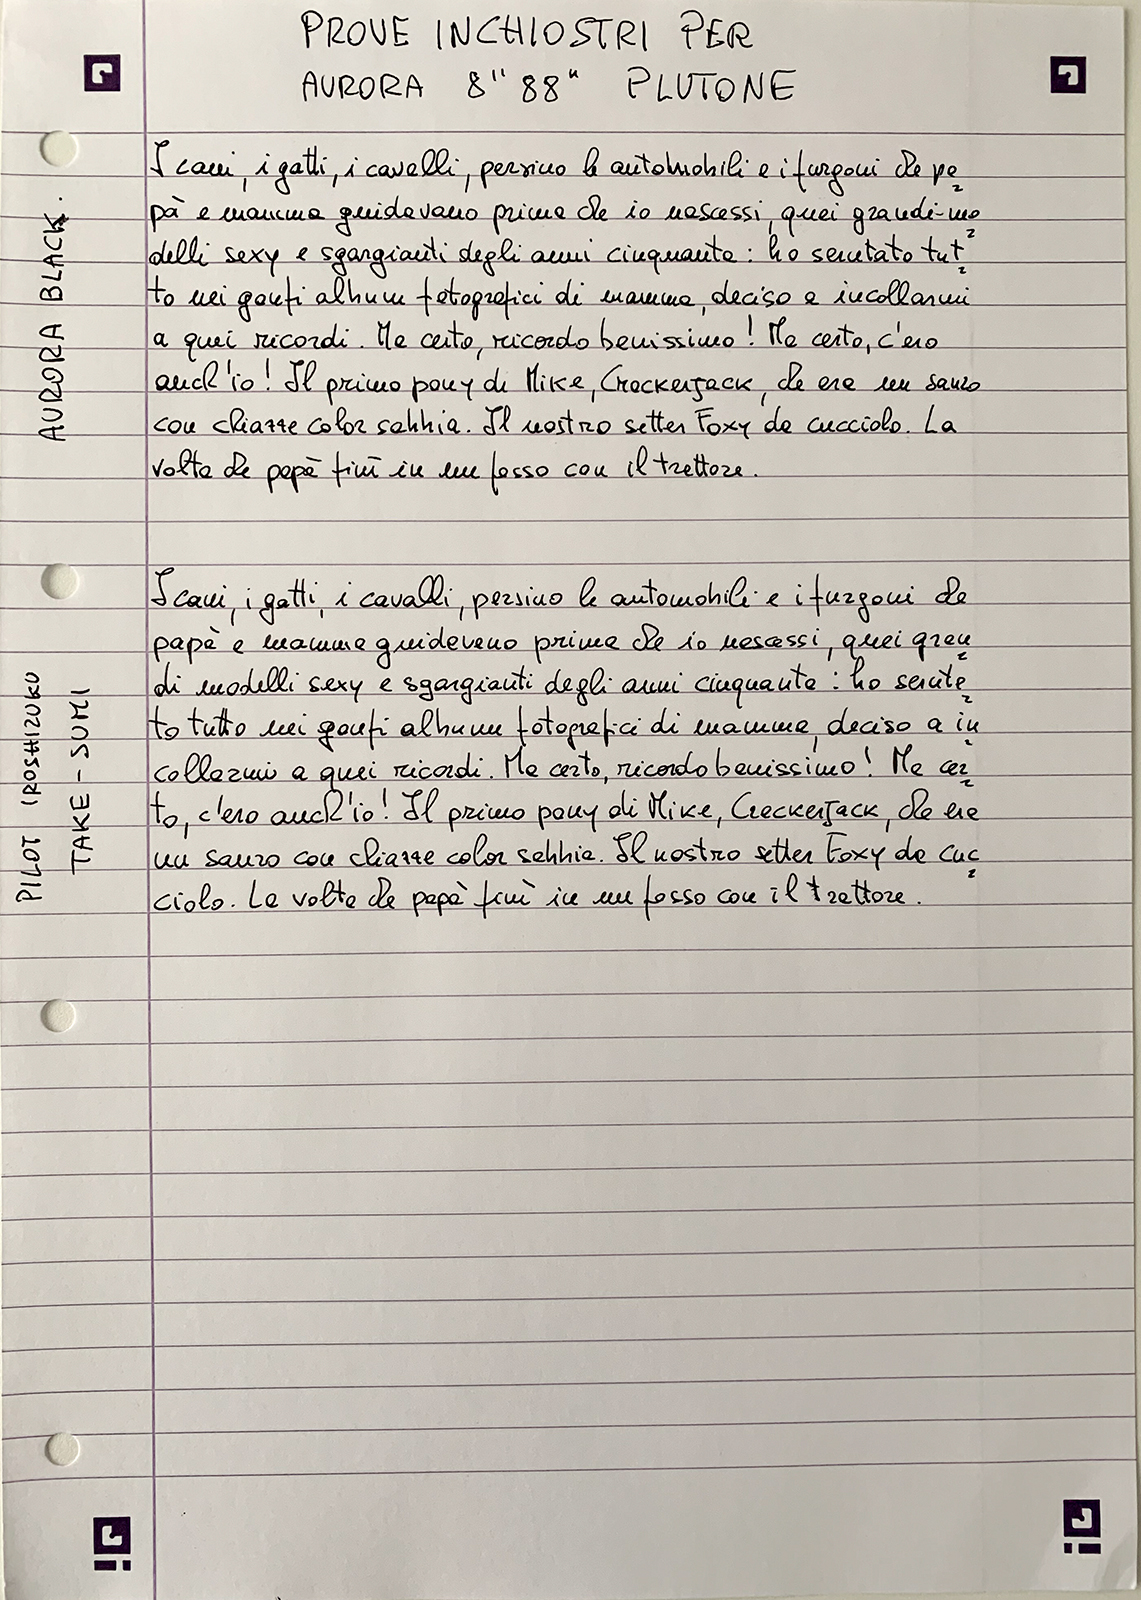 PROVE INCHIOSTRI PER
AURORA 8" 88" PLUTONE
AURORA BLACK.
I cani, i gatti, i cavalli, persino le automobili e i furgoni che pa=
pà e mamma guidavano prima che io nascessi, quei grandi mo=
delli sexy e sgargianti degli anni cinquanta: ho scrutato tut=
to nei gonfi album fotografici di mamma, deciso a incollarmi
a quei ricordi. Ma certo, ricordo benissimo! Ma certo, c'ero
anch'io! Il primo pony di Mike, CrackerJack, che era un sauro
con chiazze color sabbia. Il nostro setter Foxy da cucciolo. La
volta che papà finì in un fosso con il trattore.
PILOT IROSHIZUKU
TAKE-SUMI
I cani, i gatti, i cavalli, persino le automobili e i furgoni che
papà e mamma guidavano prima che io nascessi, quei gran=
di modelli sexy e sgargianti degli anni cinquanta: ho scruta=
to tutto nei gonfi album fotografici di mamma, deciso a in=
collarmi a quei ricordi. Ma certo, ricordo benissimo! Ma cer=
to, c'ero anch'io! Il primo pony di Mike, CrackerJack, che era
un sauro con chiazze color sabbia. Il nostro setter Foxy da cuc=
ciolo. La volta che papà finì in un fosso con il trattore.